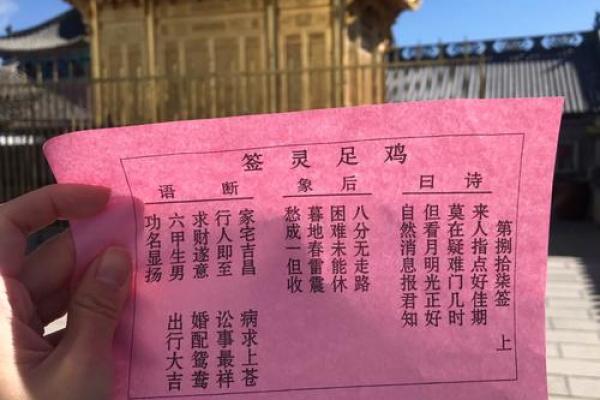 鸡足灵签
第捌拾柒签 上
诗曰
来人指点好佳期
莫在疑难门几时
但看月明光正好
自然消息报君知
后象
八分无走路
困难未能休
暮地春雷震
愁成一但收
断语
家宅吉昌 病求上苍
行人即至 讼事最祥
求财遂意 婚配鸳鸯
六甲生男 出行大吉
功名显扬